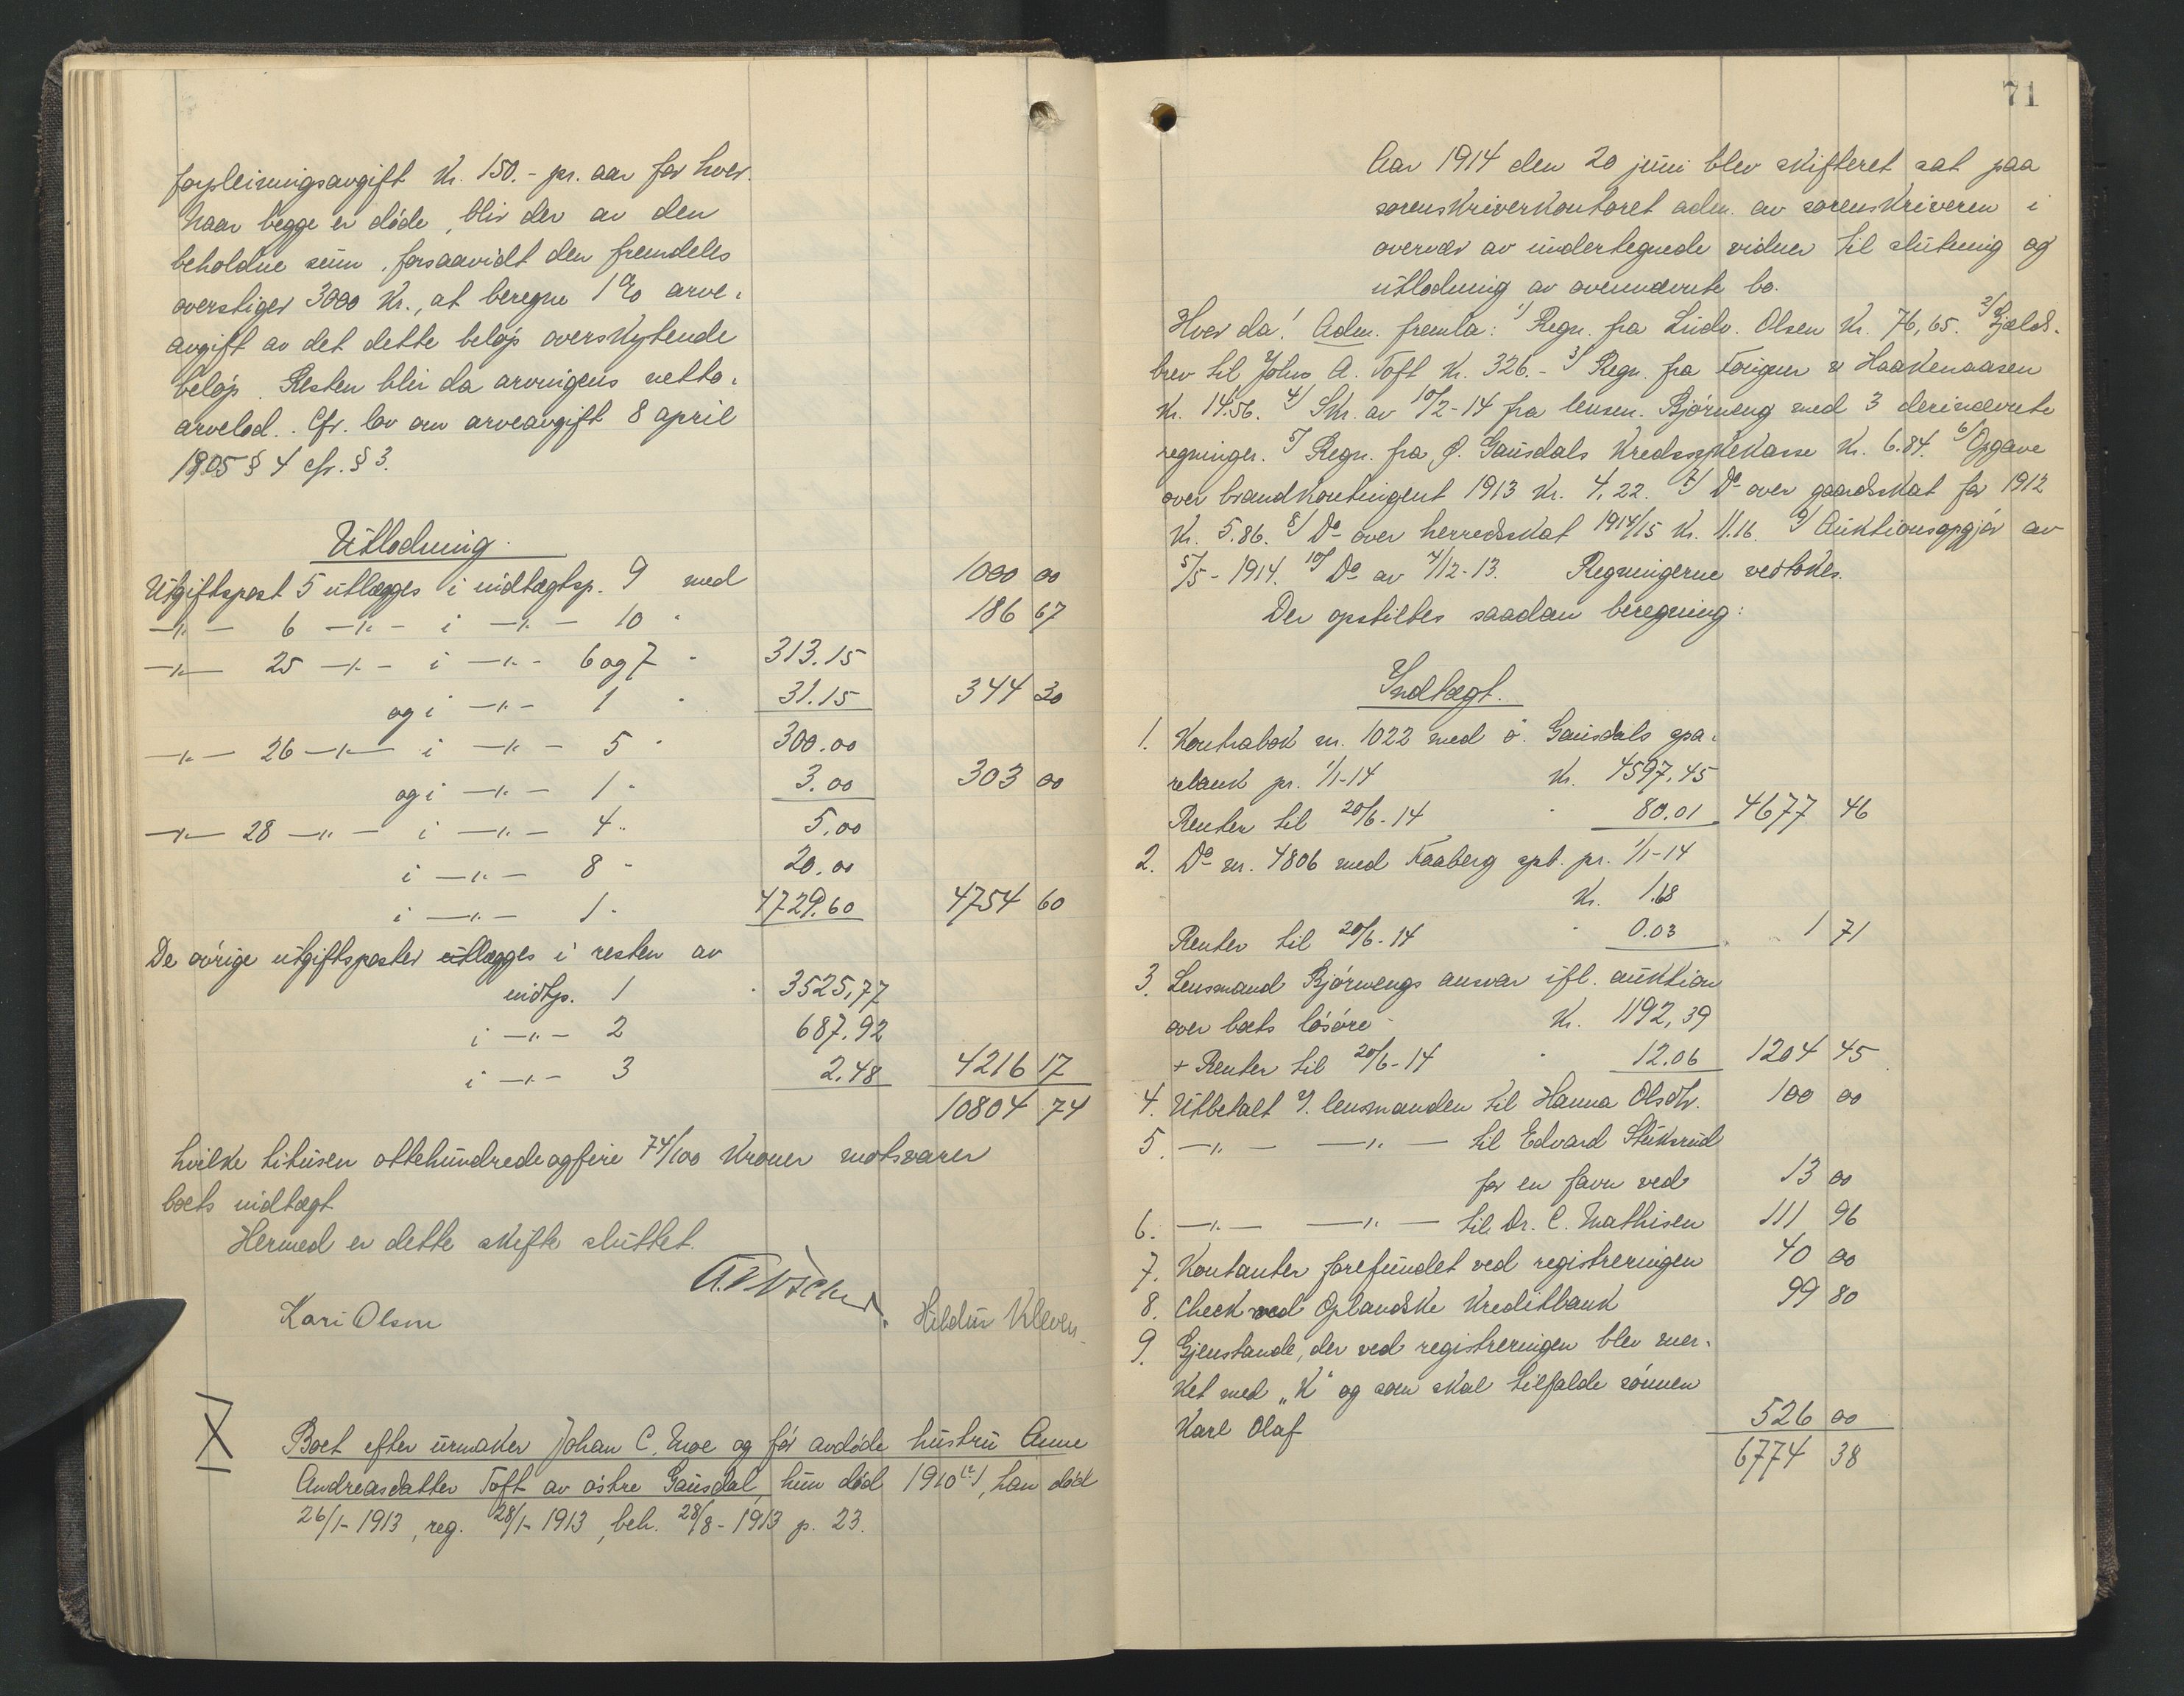 forpleiningsavgift Kr. 150.- pr. aar for hver.
Naar begge er døde, blir der av den
beholdne sum, forsaavidt den fremdeles
overstiger 3000 Kr., at beregne 1 % arve-
avgift av det dette beløp overskytende
beløp. Resten blir da arvingens netto-
arvelod. Cfr. lov om arveavgift 8 april
1905 § 4 cfr. § 3.
Utlodning.
Utgiftspost 5 utlægges i indtægtsp. 9 med 1000 00
—"— 6 —"— i —"— 10 " 186 67
—"— 25 —"— i —"— 6 og 7 " 313.15
og i —"— 1 " 31.15 344 30
—"— 26 —"— i —"— 5 " 300.00
og i —"— 1 " 3.00 303 00
—"— 28 —"— i —"— 4 " 5.00
i —"— 8 " 20.00
i —"— 1 " 4729.60 4754 60
De øvrige utgiftsposter utlægges i resten av
indtp. 1 " 3525,77
i —"— 2 687.92
i —"— 3 2.48 4216 17
10804 74
hvilke titusen ottehundredeogfire 74/100 Kroner motsvarer
boets indtægt
Hermed er dette skifte sluttet.
Kari Olsen Hildur Kleven
X Boet efter urmaker Johan C. Moe og før avdøde hustru Anne
Andreasdatter Toft av østre Gausdal, hun død 1910 (?), han død
26/1-1913, reg. 28/1-1913, beh. 28/8-1913 p. 23.
71
Aar 1914 den 20 juni blev skifteret sat paa
sorenskriverkontoret adm. av sorenskriveren i
overvær av undertegnede vidner til slutning og
utlodning av ovennævnte bo.
Hvor da! Adm. fremla: 1) Regn. fra Ludv. Olsen Kr. 76,65. 2) Gjælds-
brev til Johs A. Toft Kr. 326.- 3) Regn. fra Haakenaasen
Kr. 14.56. 4) Skr. av 10/2-14 fra lensm. Bjørneng med 3 derinævnte
regninger. 5) Regn. fra Ø. Gausdals Kredssykekasse Kr. 6.84. 6) Opgave
over brandkontingent 1913 Kr. 4,22. 7) Do over gaardskat for 1912
Kr. 5.86. 8) Do over herredsskat 1914/15 Kr. 11.16. 9) Auktionsopgjør av
5/5-1914. 10) Do av 4/12-13. Regningerne vedtokes.
Der opstilles saadan beregning:
Indtægt.
1. Kontrabok nr. 1022 med ø. Gausdals spa-
rebank pr. 1/1-14 Kr. 4597,45
Renter til 20/6-14 " 80.01 4677 46
2. Do nr. 4806 med Faaberg spb. pr. 1/1-14
Kr. 1.68
Renter til 20/6-14 " 0.03 1 71
3. Lensmand Bjørnengs ansvar ifl. auktion
over boets løsøre Kr. 1192,39
+ Renter til 20/6-14 " 12.06 1204 45
4. Utbetalt v. lensmanden til Hanna Olsdtr. 100 00
5. —"— —"— til Edvard Stuksrud
for en favn ved 13 00
6. —"— —"— til Dr. C. Mathisen 111 96
7. Kontanter forefundet ved registreringen 40 00
8. Check ved Oplandske Kreditbank 99 80
9. Gjenstande, der ved registreringen blev mer-
ket med „K" og som skal tilfalde sønnen
Karl Olaf 526 00
6774 38